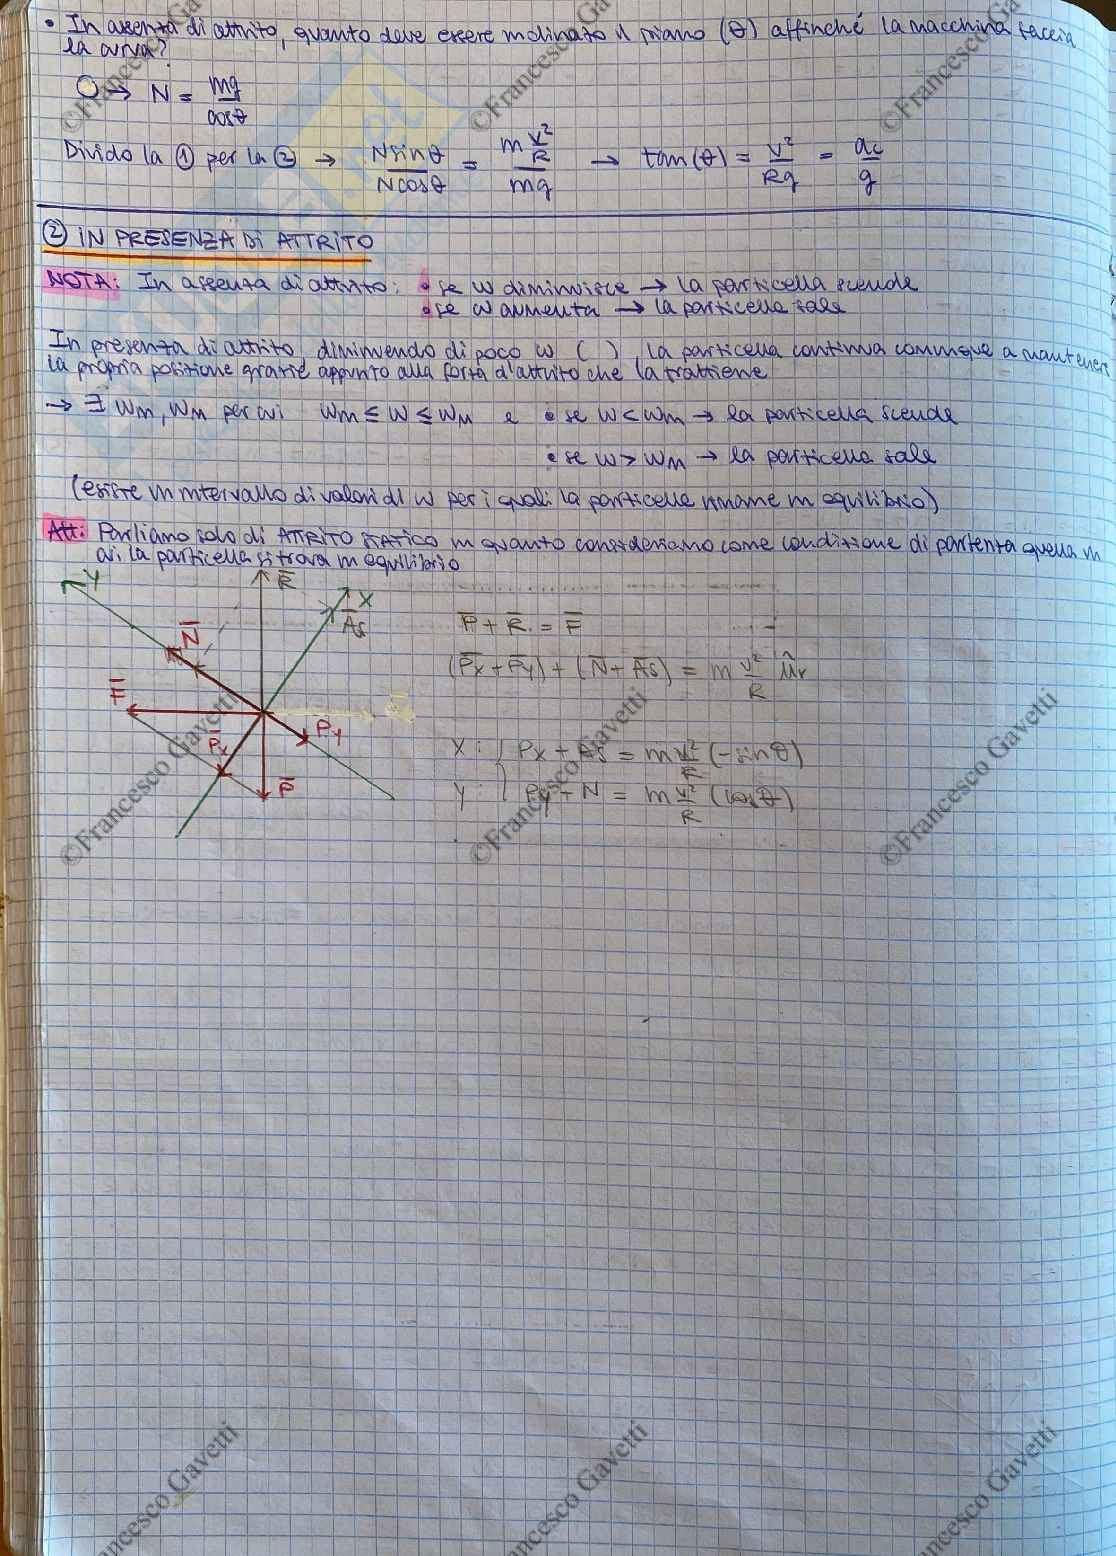 • In assenza di attrito, quanto deve essere inclinato il piano (θ) affinché la macchina faccia
la curva?
→ N = mg/cosθ
Divido la ① per la ② → Nsinθ/Ncosθ = (m v²/R)/(mg) → tan(θ) = v²/Rg = ac/g
② IN PRESENZA DI ATTRITO
NOTA: In assenza di attrito: • se ω diminuisce → la particella scende
• se ω aumenta → la particella sale
In presenza di attrito, diminuendo di poco ω ( ), la particella continua comunque a mantenere
la propria posizione grazie appunto alla forza d'attrito che la trattiene
→ ∃ ωm, ωM per cui ωm ≤ ω ≤ ωM e • se ω < ωm → la particella scende
• se ω > ωM → la particella sale
(esiste un intervallo di valori di ω per i quali la particella rimane in equilibrio)
Att: Parliamo solo di ATTRITO STATICO in quanto consideriamo come condizione di partenza quella in
cui la particella si trova in equilibrio
Y
R̄
X
Ās
N̄
F̄
Py
P̄x
P̄
P̄ + R̄ = F̄
(P̄x + P̄y) + (N̄ + Ās) = m v²/R ûr
X: Px + As = m v²/R (-sinθ)
Y: Py + N = m v²/R (cosθ)
©Francesco Ga
©Francesco Ga
©Francesco Ga
©Francesco Gavetti
©Francesco Gavetti
©Francesco Gavetti
ancesco Gavetti
ancesco Gavetti
ancesco Gavetti